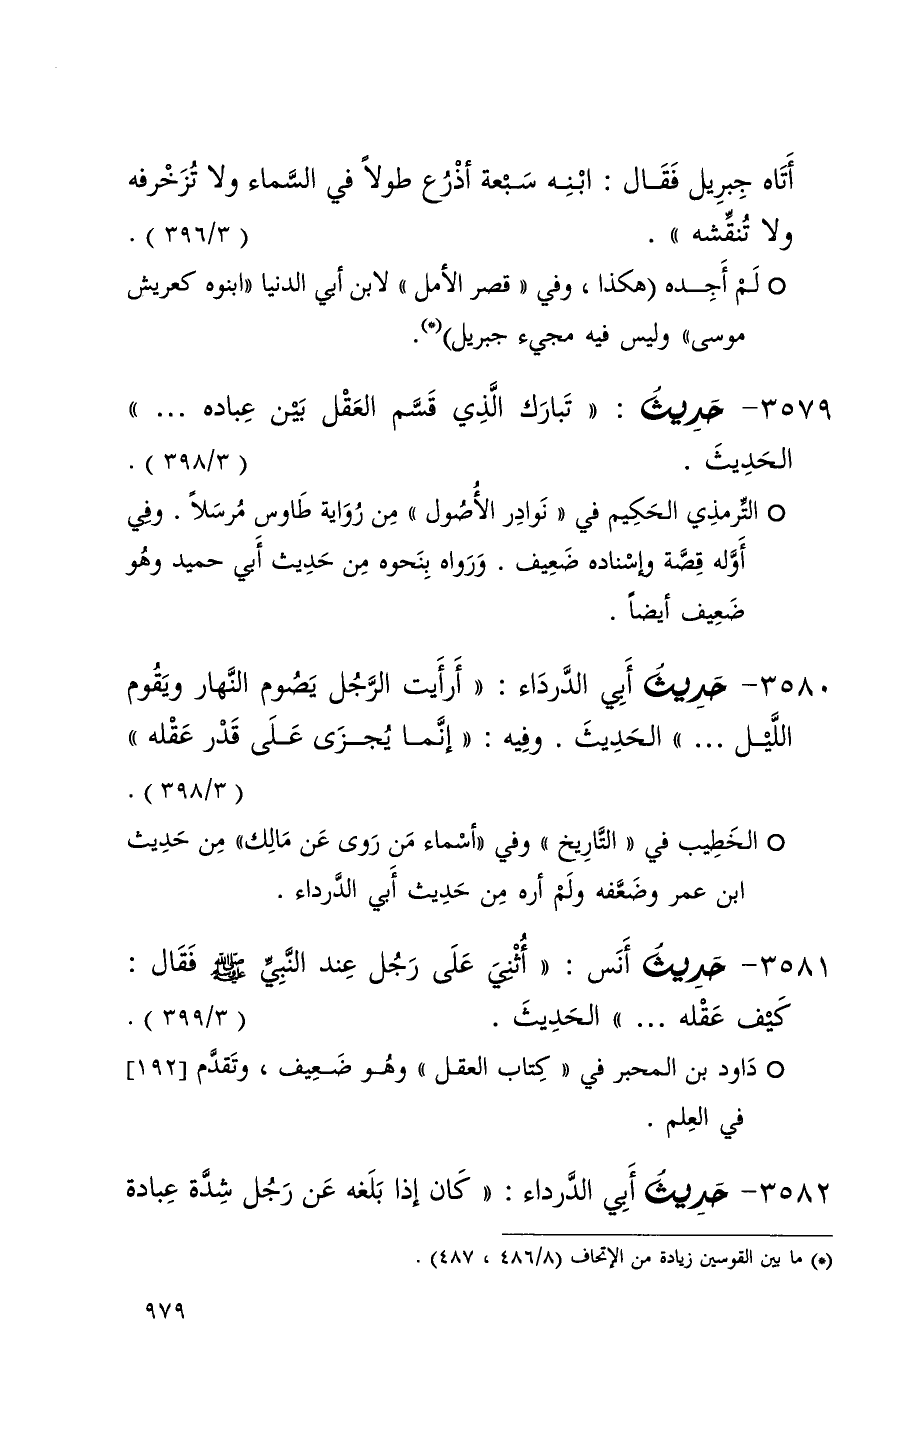 أَتَاه جِبرِيل فَقَـال : ابْنِـه سَـبْعة أذْرُع طولاً في السَّماء ولا تُزَخْرفه
ولا تُنقِّشه » . ( ٣٩٦/٣ ) .
○ لَـمْ أَجِـــده (هكذا ، وفي « قصر الأمل » لابن أبي الدنيا «ابنوه كعريش
موسى» وليس فيه مجيء جبريل)(*).
٣٥٧٩- حَدِيثُ : « تَبارَك الَّذِي قَسَّم العَقْل بَيْن عِباده ... »
الحَدِيثَ . ( ٣٩٨/٣ ) .
○ التِّرمذِي الحَكِيم في « نَوادِر الأُصُول » مِن رُوَاية طَاوس مُرسَلاً . وفِي
أَوَّله قِصَّة وإسْناده ضَعِيف . وَرَواه بِنَحوه مِن حَدِيث أَبي حميد وهُو
ضَعِيف أيضاً .
٣٥٨٠- حَدِيثُ أَبِي الدَّردَاء : « أَرأَيت الرَّجُل يَصُوم النَّهار ويَقُوم
اللَّيْـل ... » الحَدِيثَ . وفِيه : « إنَّمـا يُجـزَى عَـلَى قَدْر عَقْله »
( ٣٩٨/٣ ) .
○ الخَطِيب في « التَّارِيخ » وفي «أسْماء مَن رَوى عَن مَالِك» مِن حَدِيث
ابن عمر وضَعَّفه ولَمْ أره مِن حَدِيث أَبي الدَّرداء .
٣٥٨١- حَدِيثُ أَنَس : « أُثْنِيَ عَلَى رَجُل عِند النَّبِيِّ ﷺ فَقَال :
كَيْف عَقْله ... » الحَدِيثَ . ( ٣٩٩/٣ ) .
○ دَاود بن المحبر في « كِتاب العقـل » وهُـو ضَـعِيف ، وتَقدَّم [١٩٢]
في العِلم .
٣٥٨٢- حَدِيثُ أَبِي الدَّرداء : « كَان إذا بَلَغه عَن رَجُل شِدَّة عِبادة
(*) ما بين القوسين زيادة من الإتحاف (٤٨٦/٨ ، ٤٨٧) .
٩٧٩